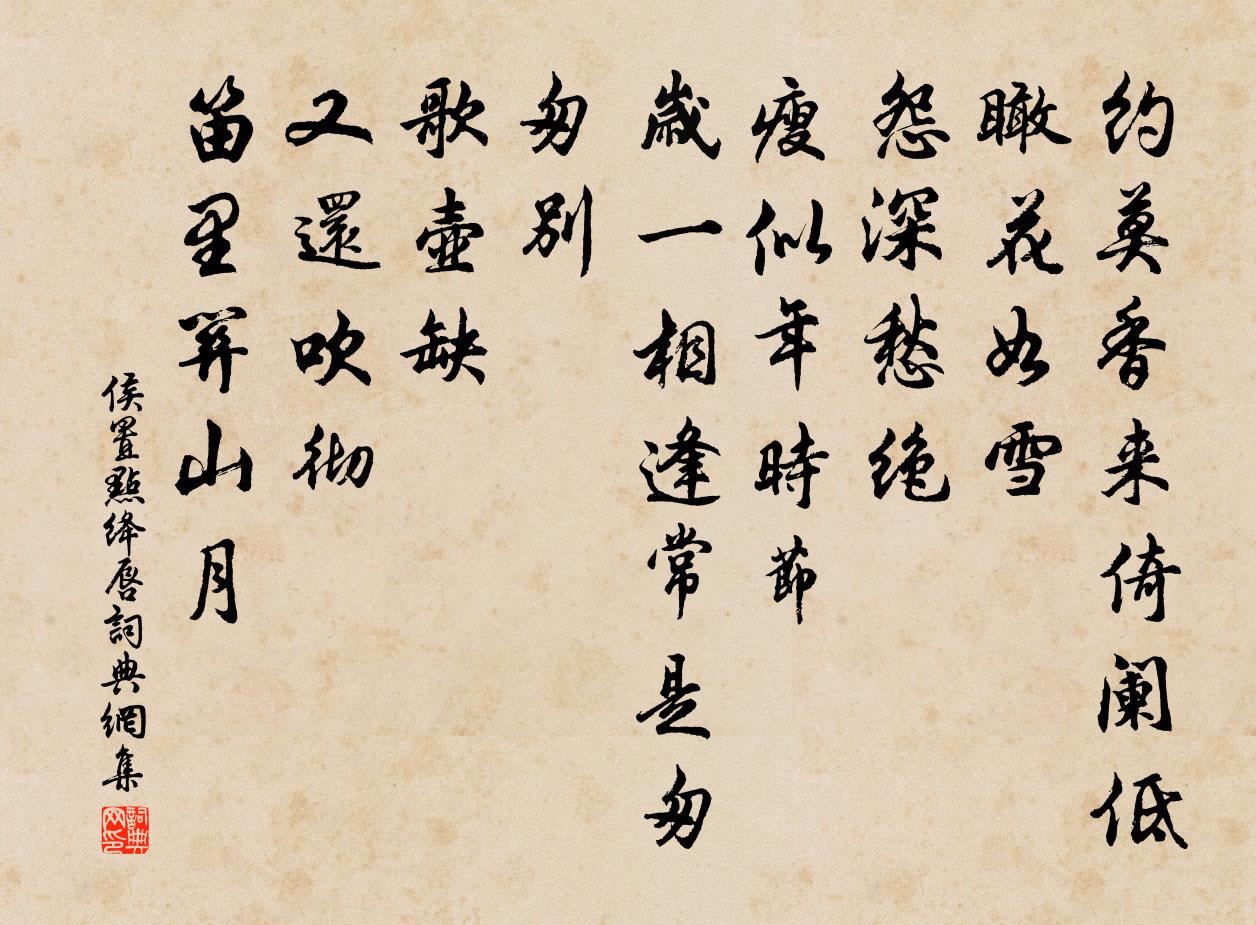 约莫香来倚阑低
瞰花如雪
怨深愁绝
瘦似年時節
歲一相逢常是匆
匆別
歌壺缺
又還吹彻
笛里關山月
侯置點絳唇詞典網集
詞典网印